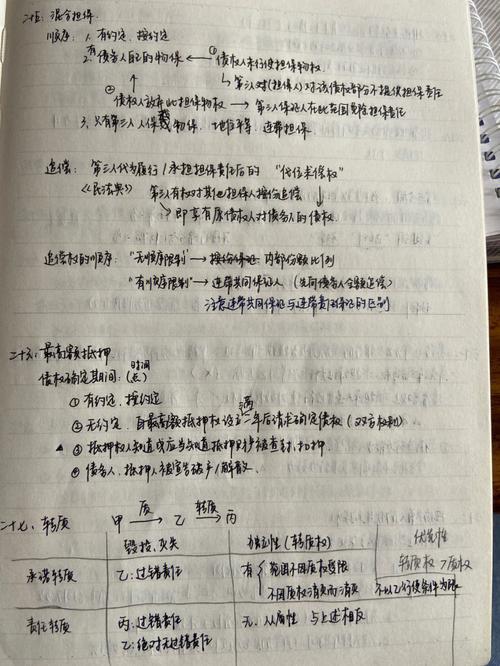 二十五、混合担保.
顺序: 1. 有约定, 按约定
2. 有债务人自己的物保 ← ① 债权人未行使担保物权.
↳ 第三人对(担保人)对该债权部分不提供担保责任
② 债权人放弃此担保物权 → 第三人保证人在此范围免除担保责任
3. 只有第三人人保或物保, 地位平等, 连带担保
追偿: 第三人代为履行/承担担保责任后的 "代位求偿权"
《民法典》 第三人有权对其他担保人按份追偿
↳ 即享有原债权人对债务人的债权.
追偿权的顺序: "无顺序限制" → 按份保证 内部份额比例
"有顺序限制" → 连带共同保证人 (先向债务人全额追偿)
注意连带共同保证与连带责任保证的区别
二十六、最高额抵押
债权确定期间: 时间(点)
① 有约定, 按约定
② 无约定, 自最高额抵押权设立满二年后请求确定债权 (双方权利)
③ 抵押权人知道或应当知道抵押财产被查封, 扣押.
④ 债务人、抵押人被宣告破产/解散.
二十七、转质 甲 质→ 乙 转质→ 丙
毁损, 灭失 独立性 (转质权) 优先性
承诺转质 乙: 过错责任 有 { 范围不因质权受限 转质权>质权
不因质权消灭而消灭 不以乙行使条件为限
责任转质 丙: 过错责任 无. 从属性 与上述相反
乙: 绝对无过错责任